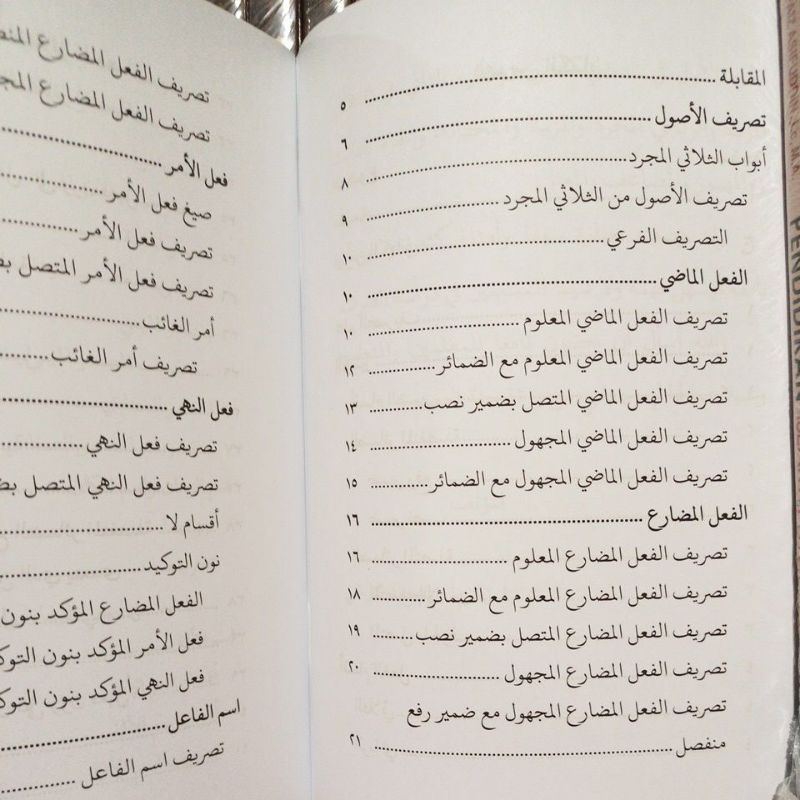 المقابلة ٥
تصريف الأصول ٦
أبواب الثلاثي المجرد ٨
تصريف الأصول من الثلاثي المجرد ٩
التصريف الفرعي ١٠
الفعل الماضي ١٠
تصريف الفعل الماضي المعلوم ١٠
تصريف الفعل الماضي المعلوم مع الضمائر ١٢
تصريف الفعل الماضي المتصل بضمير نصب ١٣
تصريف الفعل الماضي المجهول ١٤
تصريف الفعل الماضي المجهول مع الضمائر ١٥
الفعل المضارع ١٦
تصريف الفعل المضارع المعلوم ١٦
تصريف الفعل المضارع المعلوم مع الضمائر ١٨
تصريف الفعل المضارع المتصل بضمير نصب ١٩
تصريف الفعل المضارع المجهول ٢٠
تصريف الفعل المضارع المجهول مع ضمير رفع
منفصل ٢١
تصريف الفعل المضارع
تصريف الفعل المضارع
فعل الأمر
صيغ فعل الأمر
تصريف فعل الأمر
تصريف فعل الأمر المتصل
أمر الغائب
تصريف أمر الغائب
فعل النهي
تصريف فعل النهي
تصريف فعل النهي المتصل
أقسام لا
نون التوكيد
الفعل المضارع المؤكد بنون
فعل الأمر المؤكد بنون
فعل النهي المؤكد بنون
اسم الفاعل
تصريف اسم الفاعل
PENDIDIKAN